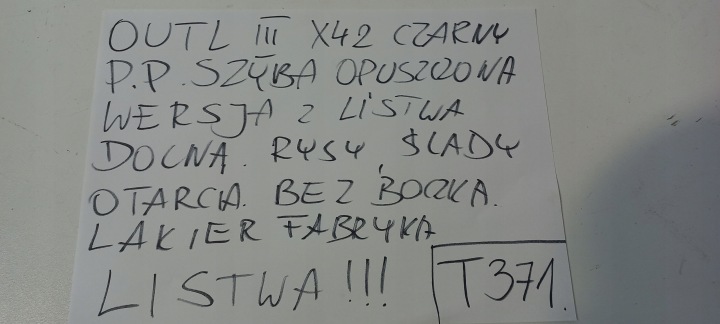 OUTL III X42 CZARNY
P.P. SZYBA OPUSZCZONA
WERSJA Z LISTWA
DOLNA. RYSY, ŚLADY
OTARCIA. BEZ BOCZKA.
LAKIER FABRYKA
LISTWA!!! T371.